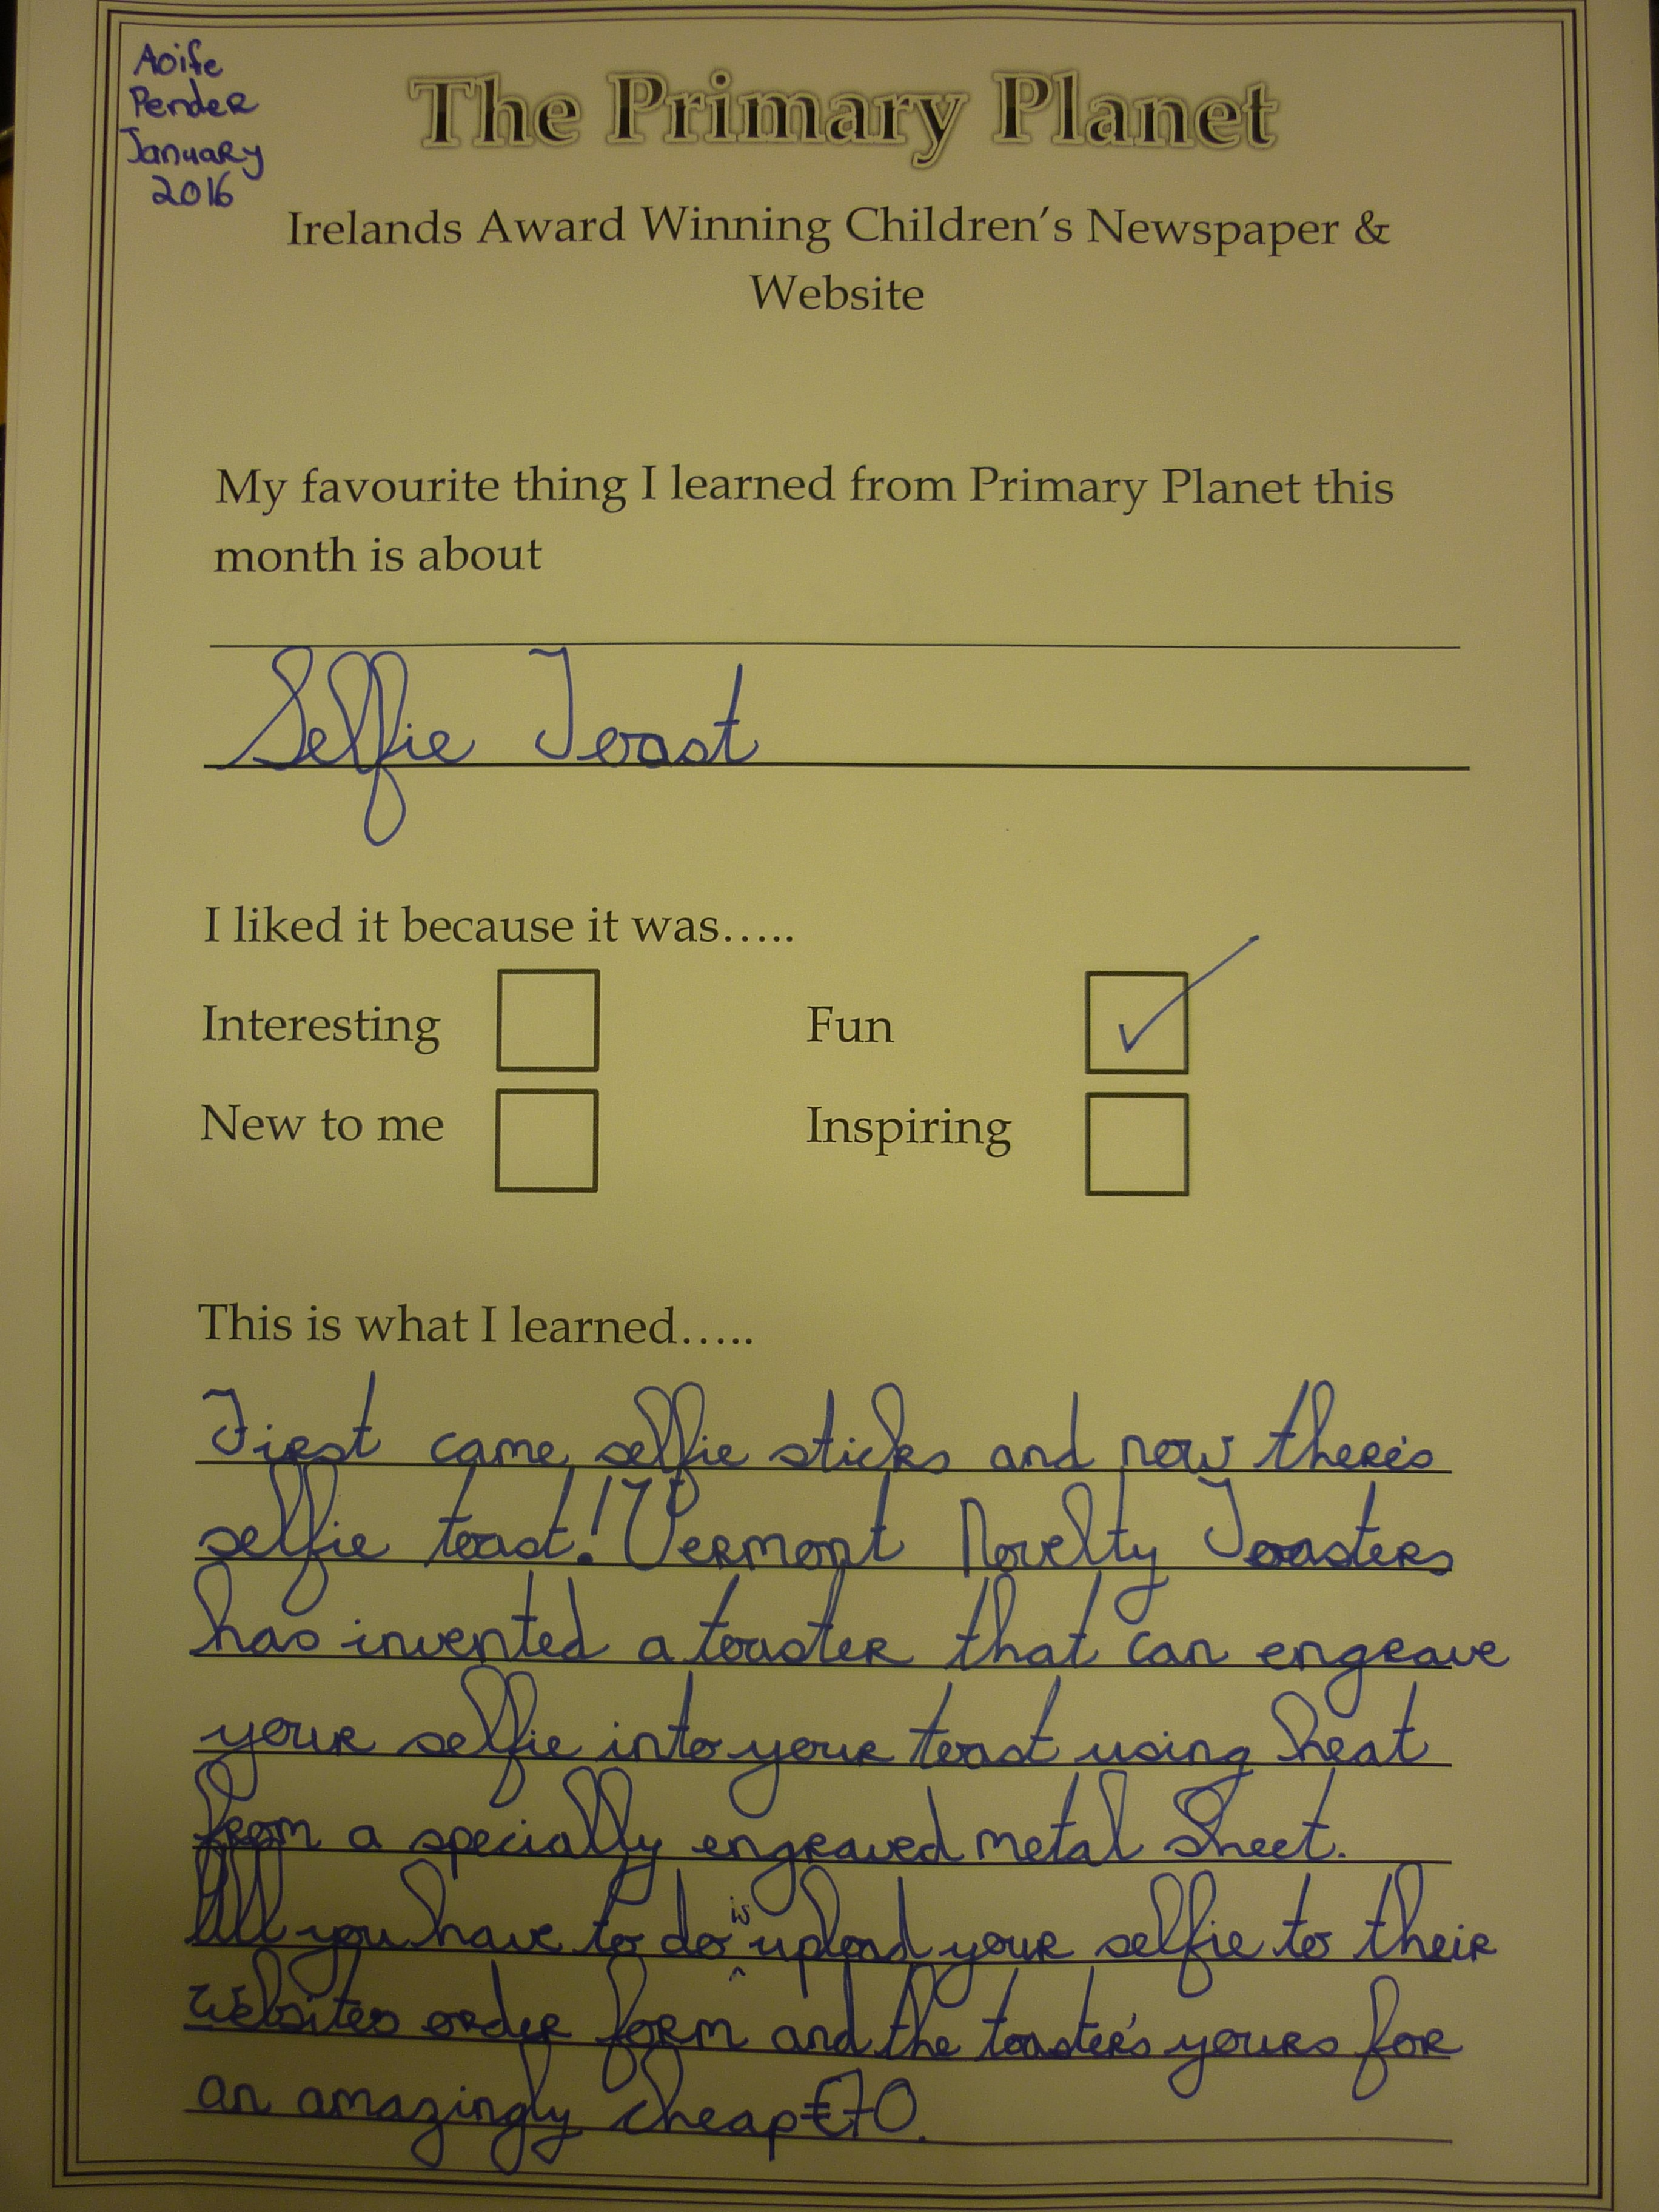 Aoife
Pender
January
2016
The Primary Planet
Irelands Award Winning Children's Newspaper &
Website
My favourite thing I learned from Primary Planet this
month is about
Selfie Toast
I liked it because it was.....
Interesting Fun
New to me Inspiring
This is what I learned.....
First came selfie sticks and now there's
selfie toast! Vermont Novelty Toasters
has invented a toaster that can engrave
your selfie into your toast using heat
from a specially engraved metal sheet.
All you have to do is upload your selfie to their
websites order form and the toaster's yours for
an amazingly cheap €70.